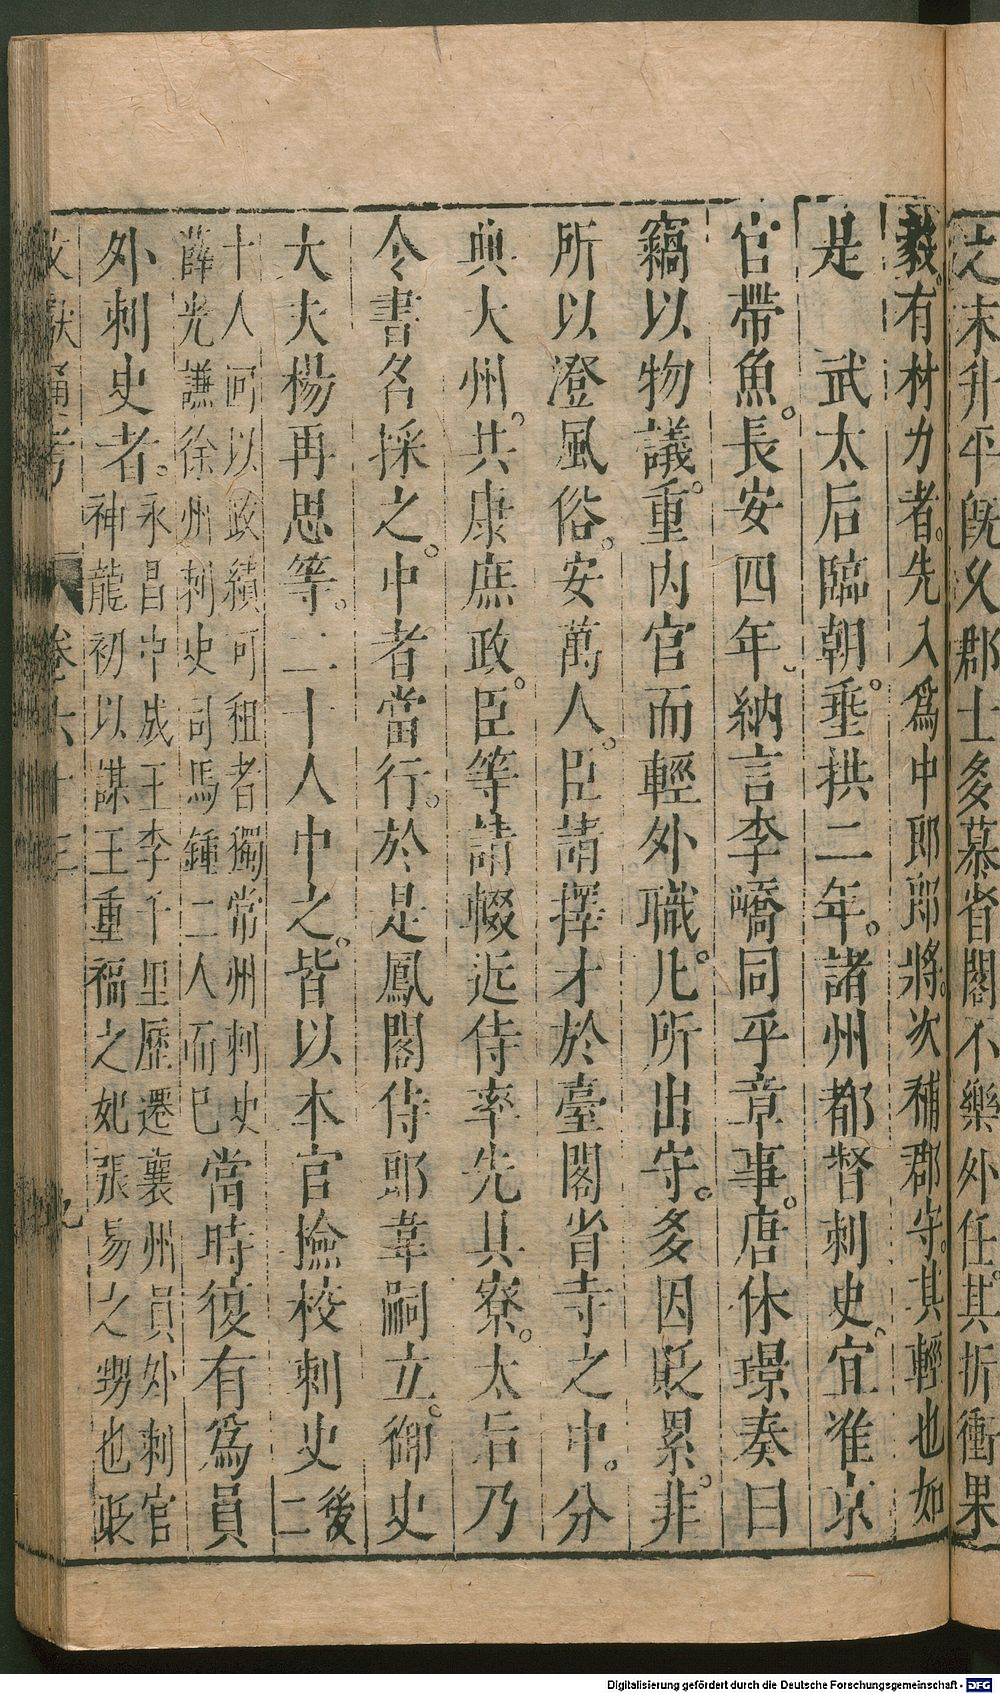 之末升平既久郡士多慕省閣不樂外任其折衝果
毅。有材力者。先入爲中郎郎將。次補郡守。其輕也如
是　武太后臨朝。垂拱二年。諸州都督刺史。宜准京
官帶魚。長安四年。納言李嶠同平章事。唐休璟奏曰
竊以物議。重内官而輕外職。凡所出守。多因貶累。非
所以澄風俗。安萬人。臣請擇才於臺閣省寺之中。分
典大州。共康庶政。臣等請輟近侍率先具寮。太后乃
令書名採之。中者當行。於是鳳閣侍郎韋嗣立。御史
大夫楊再思等。二十人中之。皆以本官撿校刺史後二
十人可以政績可稱者獨常州刺史
薛光謙徐州刺史司馬鍾二人而已當時復有爲員
外刺史者。永昌中成王李千里歷遷襄州員外刺官
神龍初以譙王重福之妃張易之甥也貶
文獻通考　卷六十三　九
Digitalisierung gefördert durch die Deutsche Forschungsgemeinschaft - DFG